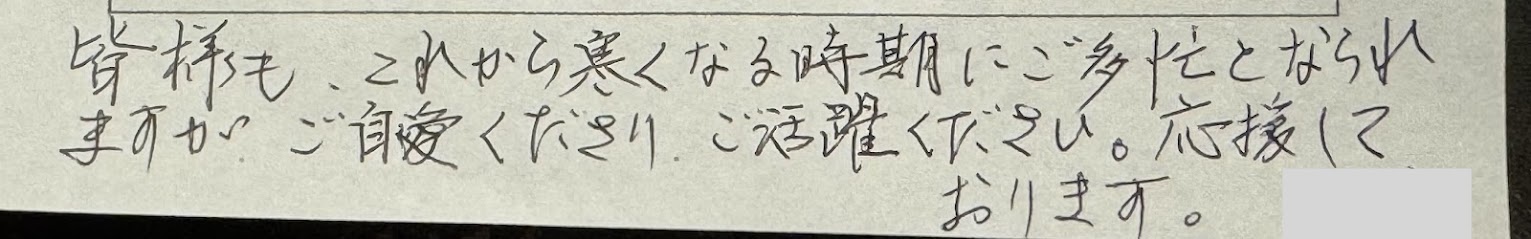 皆様も、これから寒くなる時期にご多忙となられ
ますが、ご自愛くださり、ご活躍ください。応援して
おります。